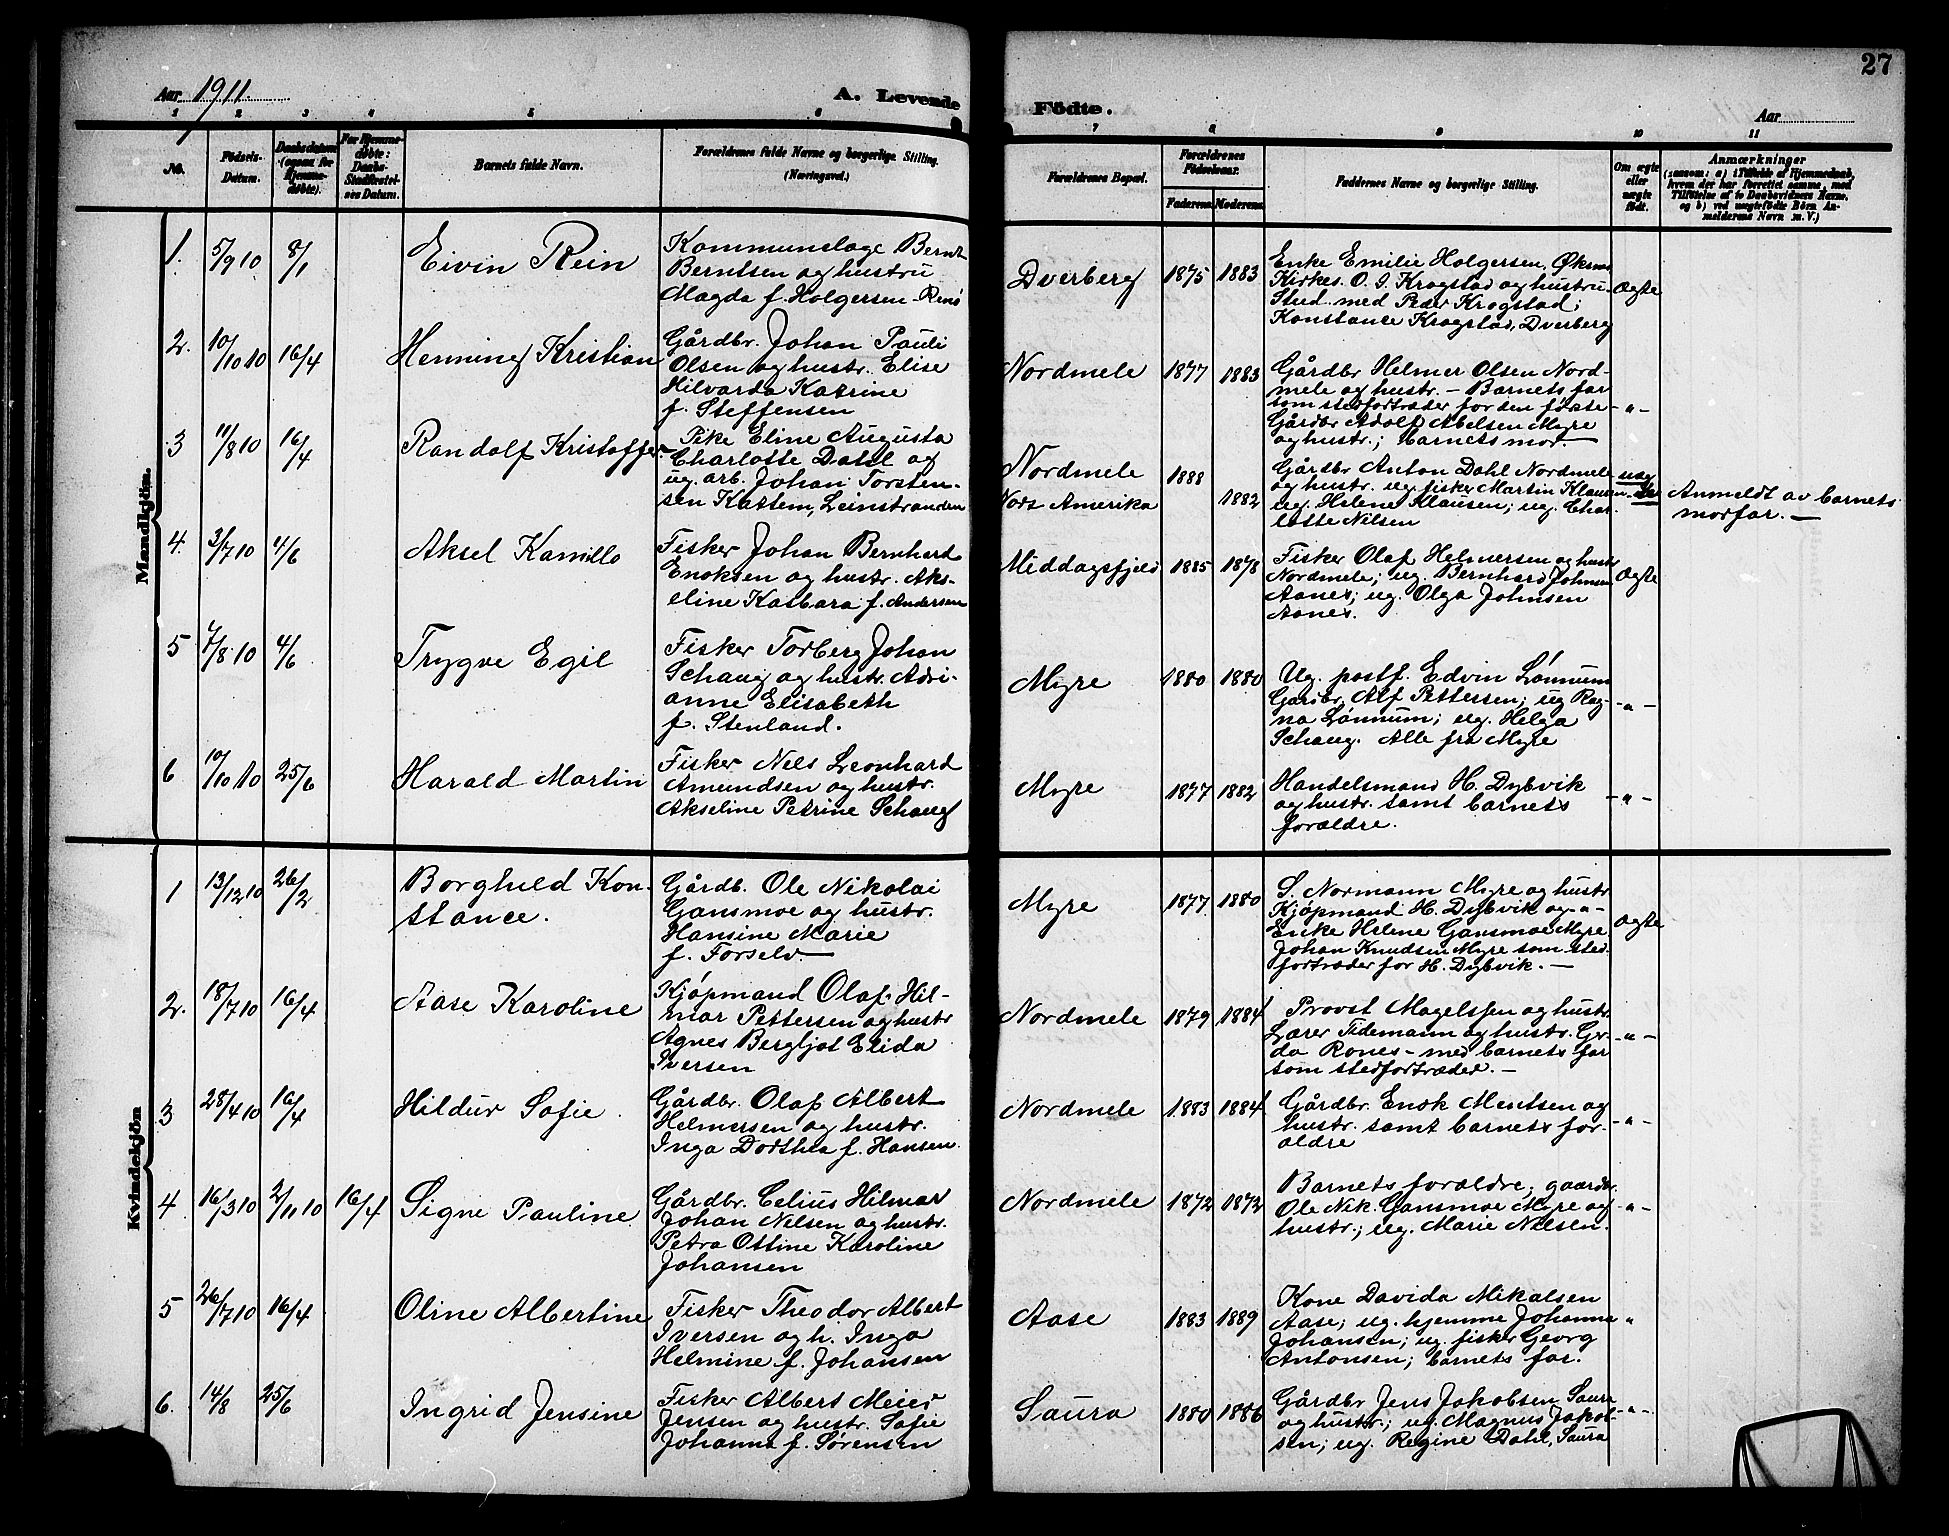 27
Aar 1911.
A. Levende
Födte.
Aar
1 2 3 4 5 6 7 8 9 10 11
No.
Födsels-
Datum.
Daabsdatum
(ogsaa for
Hjemme-
døbte).
For Hjemme-
døbte:
Daabs-
Stadfæstel-
ses Datum.
Barnets fulde Navn.
Forældrenes fulde Navne og borgerlige Stilling.
(Næringsvei.)
Forældrenes Bopæl.
Forældrenes
Födselsaar.
Faderens
Moderens
Faddernes Navne og borgerlige Stilling.
Om ægte
eller
uægte
født.
Anmærkninger
(saasom: a) i Tilfælde af Hjemmedaab,
hvem der har forrettet samme, med
Tilføielse af to Daabsvidners Navne,
og b) ved uægtefødte Börn An-
melderens Navn m. V.)
Mandkjön.
1. 5/9 10 8/1 Eivin Rein
Kommunelæge Bernt
Berntsen og hustru
Magda f. Holgersen-Rens
Dverberg 1875 1883
Enke Emilie Holgersen, Øksnes
Kirkes. O. J. Krogstad og hustru
Stud. med Peder Krogstad;
Konstance Krogstad, Dverberg
Ægte
2. 10/10 10 16/4 Henning Kristian
Gårdbr. Johan Pauli
Olsen og hustr. Elise
Hilvarda Katrine
f. Steffensen
Nordmele 1877 1883
Gårdbr Helmer Olsen Nord-
mele og hustr. - Barnets far
som stedfortræder for den første
Gårdbr Adolf Abelsen Myre
og hustr.; barnets mor. -
-"-
3 11/8 10 16/4 Randolf Kristoffer.
Pike Eline Augusta
Charlotte Dahl og
ug. arb. Johan Torsten-
sen Kattem, Leinstranden
Nordmele 1888
Nord Amerika 1882
Gårdbr Anton Dahl Nordmele
og hustr. ug. fisker Martin Klausen
ug. Helene Klausen; ug. Char-
lotte Nilsen
uæg-
te
Anmeldt av barnets
morfar. -
4. 3/7 10 4/6 Aksel Kamillo
Fisker Johan Bernhard
Enoksen og hustr. Aks-
eline Barbara f. Andersen
Middagsfjeld 1885 1878
Fisker Olaf Helmersen og hustr
Nordmele; ug. Bernhard Johnsen
Aanes; ug. Olga Johnsen
Aanes.
Ægte
5 7/8 10 4/6 Trygve Egil
Fisker Torberg Johan
Schaug og hustr. Adri-
anne Elisabeth
f. Stenland.
Myre 1880 1880
Ug. postf. Edvin Lønnum
Gardbr. Alf Pettersen; ug Rag-
na Lønnum; ug. Helga
Schaug. Alle fra Myre
-"-
6 10/10 10 25/6 Harald Martin
Fisker Nils Leonhard
Amundsen og hustr.
Akseline Petrine Schaug
Myre 1877 1882
Handelsmand H. Dybvik
og hustr. samt barnets
forældre.
-"-
Kvindekjön
1 13/12 10 26/2 Borghild Kon-
stance.
Gårdb. Ole Nikolai
Gansmoe og hustr.
Hansine Marie
f. Forselv. -
Myre 1877 1880
S. Normann Myre og hustr
Kjøpmand H. Dybvik og -"-
Enke Helene Gansmoe Myre
Johan Knudsen Myre som sted-
fortræder for H. Dybvik. -
Ægte
2. 18/7 10 16/4 Aase Karoline
Kjøpmand Olaf Hil-
mar Pettersen og hustr
Agnes Bergljot Elida
Iversen
Nordmele 1879 1884
Provst Magelssen og hustr.
Lærer Tidemann og hustr. Ger-
da Rones - med barnets far
som stedfortræder. -
-"-
3 28/4 10 16/4 Hildur Sofie.
Gårdbr. Olaf Albert
Helmersen og hustr.
Inga Dorthea f. Hansen.
Nordmele 1883 1884
Gårdbr. Enok Mentsen og
hustr. samt barnets for-
ældre
-"-
4 16/3 10 2/11 10 16/4 Signe Pauline
Gårdbr. Celius Hilmar
Johan Nilsen og hustr.
Petra Ottine Karoline
Johansen
Nordmele 1872 1872
Barnets forældre; gaardbr.
Ole Nik. Gansmoe Myre og
hustr.; ug. Marie Nilsen.
-"-
5 26/7 10 16/4 Oline Albertine
Fisker Theodor Albert
Iversen og h. Inga
Helmine f. Johansen
Aase 1883 1889
Kone Davida Mikalsen
Aase; ug. hjemme Johanna
Johansen; ug. fisker Georg
Antonsen; barnets far.
"
6. 14/8 25/6 Ingrid Jensine
Fisker Albert Meier
Jensen og hustr. Sofie
Johanna f. Sørensen
Saura 1880 1886
Gårdbr Jens Jakobsen Saura
og hustr.; ug. Magnus Jakob-
sen; ug. Regine Dahl, Saura
-"-